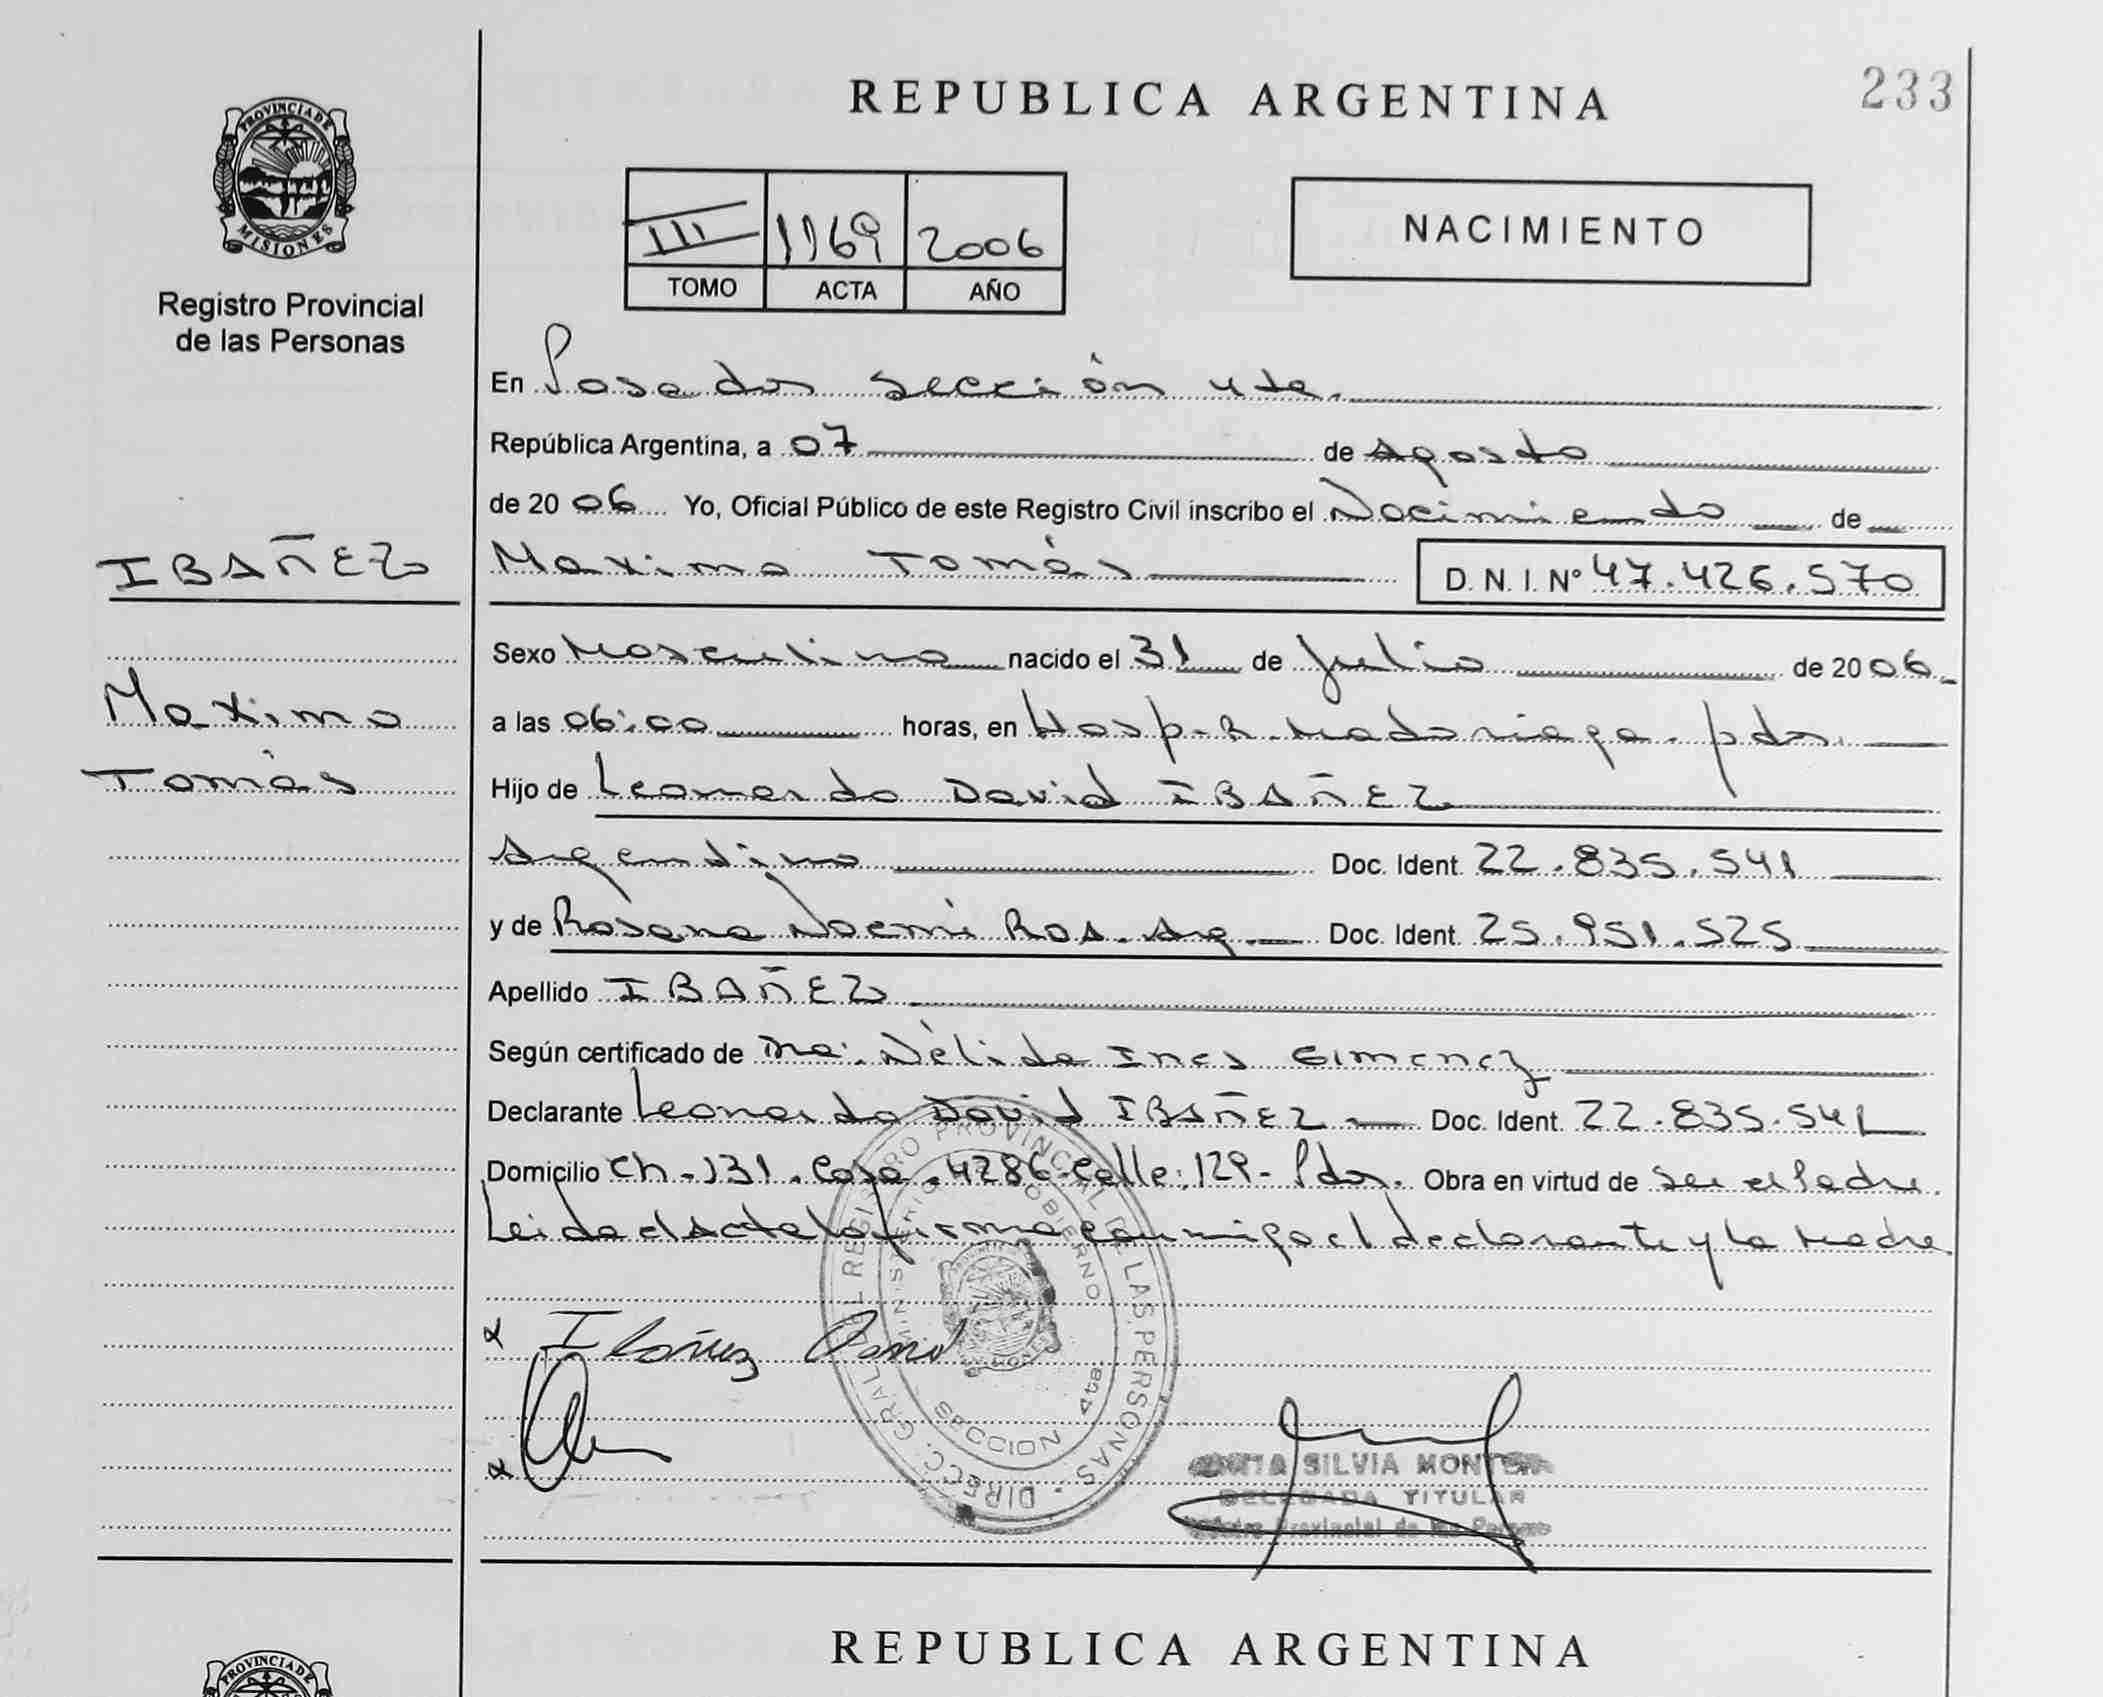 REPUBLICA ARGENTINA
233
PROVINCIA DE
MISIONES
Registro Provincial
de las Personas
III 1169 2006
TOMO ACTA AÑO
NACIMIENTO
En Posadas sección 4ta.
República Argentina, a 07 de Agosto
de 2006 Yo, Oficial Público de este Registro Civil inscribo el Nacimiento de
IBAÑEZ
Maximo Tomás D. N. I. Nº 47.426.570
Sexo Masculino nacido el 31 de Julio de 2006.
Maximo
Tomás
a las 06:00 horas, en Hosp. R. Madariaga. pdas.
Hijo de Leonardo David IBAÑEZ
Argentino Doc. Ident. 22.835.541
y de Rosana Noemi Ros. Arg. Doc. Ident. 25.951.525
Apellido IBAÑEZ
Según certificado de Nélida Ines Gimenez
Declarante Leonardo David IBAÑEZ Doc. Ident. 22.835.541
Domicilio Ch-131. Casa. 4286-Calle:129- Pdas. Obra en virtud de ser el Padre.
Leida el Acta la firma conmigo el declarante y la Madre
Ibañez David
DIRECC. GRAL. DEL REGISTRO PROVINCIAL DE LAS PERSONAS
MINISTERIO GOBIERNO
SECCION 4ta.
SILVIA
DELEGADA TITULAR
Registro Provincial de las Personas
REPUBLICA ARGENTINA
PROVINCIA DE